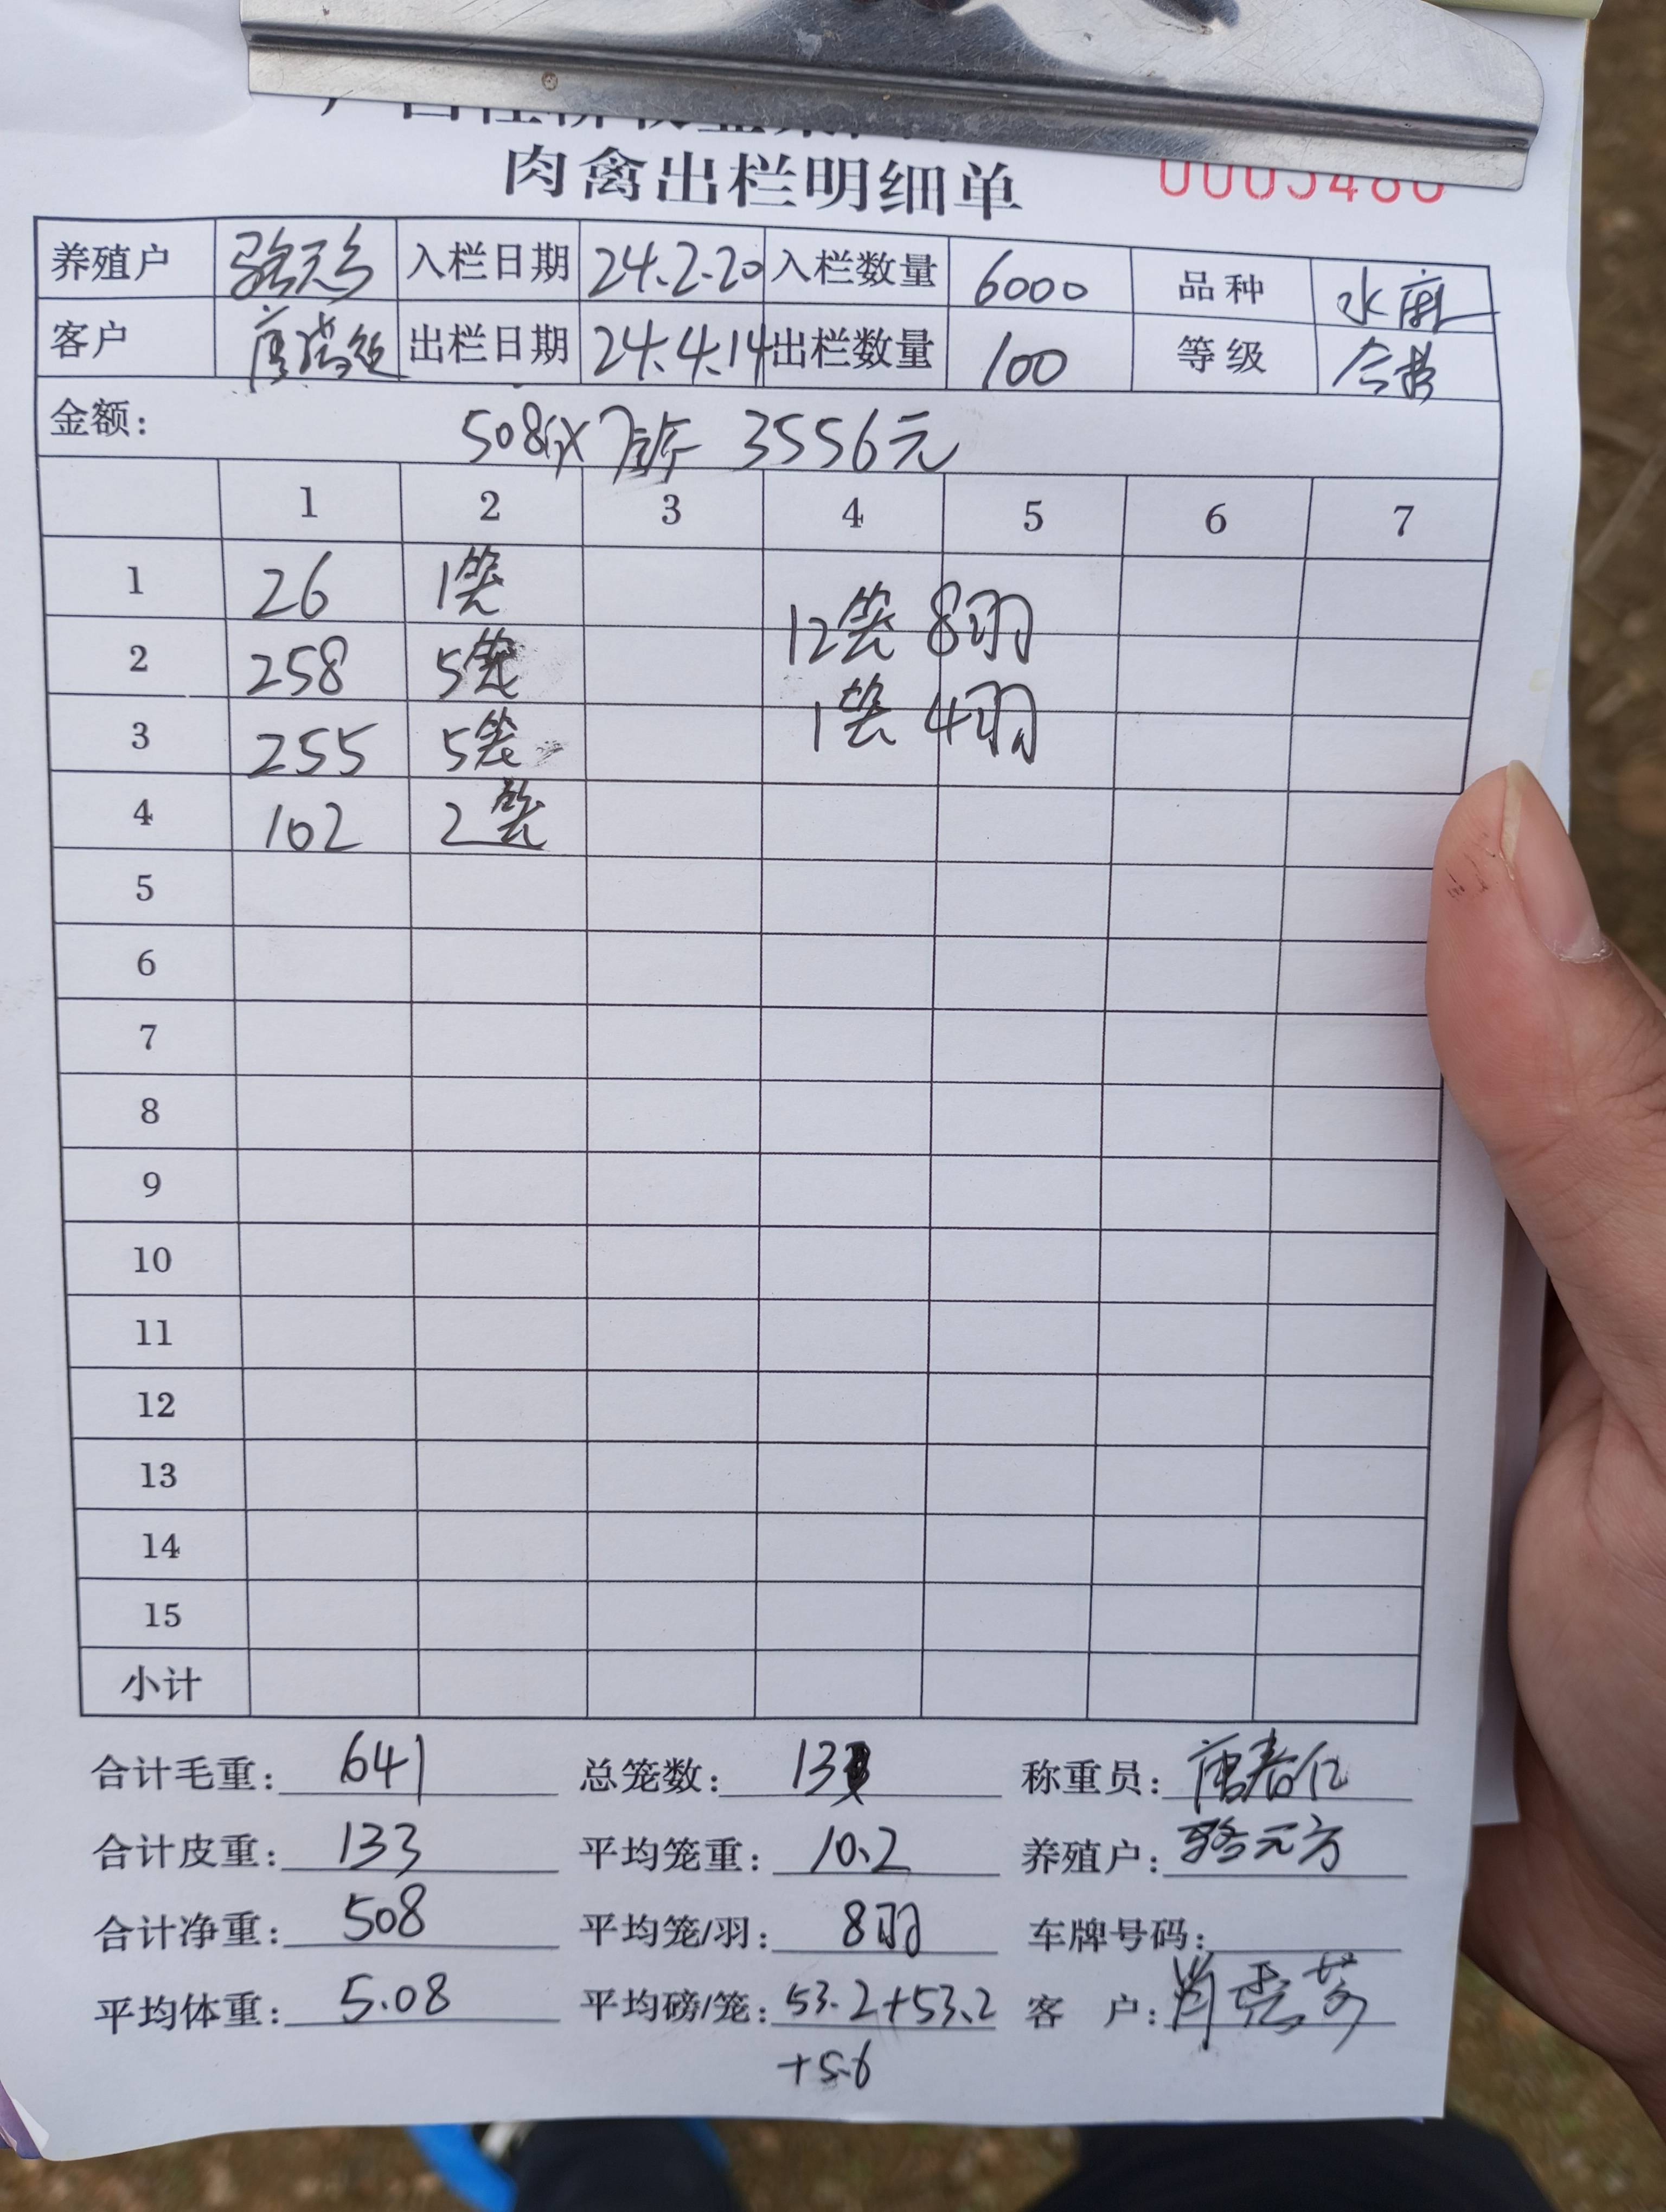 肉禽出栏明细单
养殖户 入栏日期 24.2.20 入栏数量 6000 品种 水麻
客户 出栏日期 24.4.14 出栏数量 100 等级 合格
金额: 508 3556元
1 2 3 4 5 6 7
1 26 1笼
12笼 8羽
2 258 5笼
1笼 4羽
3 255 5笼
4 102 2笼
5
6
7
8
9
10
11
12
13
14
15
小计
合计毛重: 641 总笼数: 13 称重员: 唐春亿
合计皮重: 133 平均笼重: 10.2 养殖户: 骆元方
合计净重: 508 平均笼/羽: 8羽 车牌号码:
平均体重: 5.08 平均磅/笼: 53.2+53.2 客 户:
+5.6